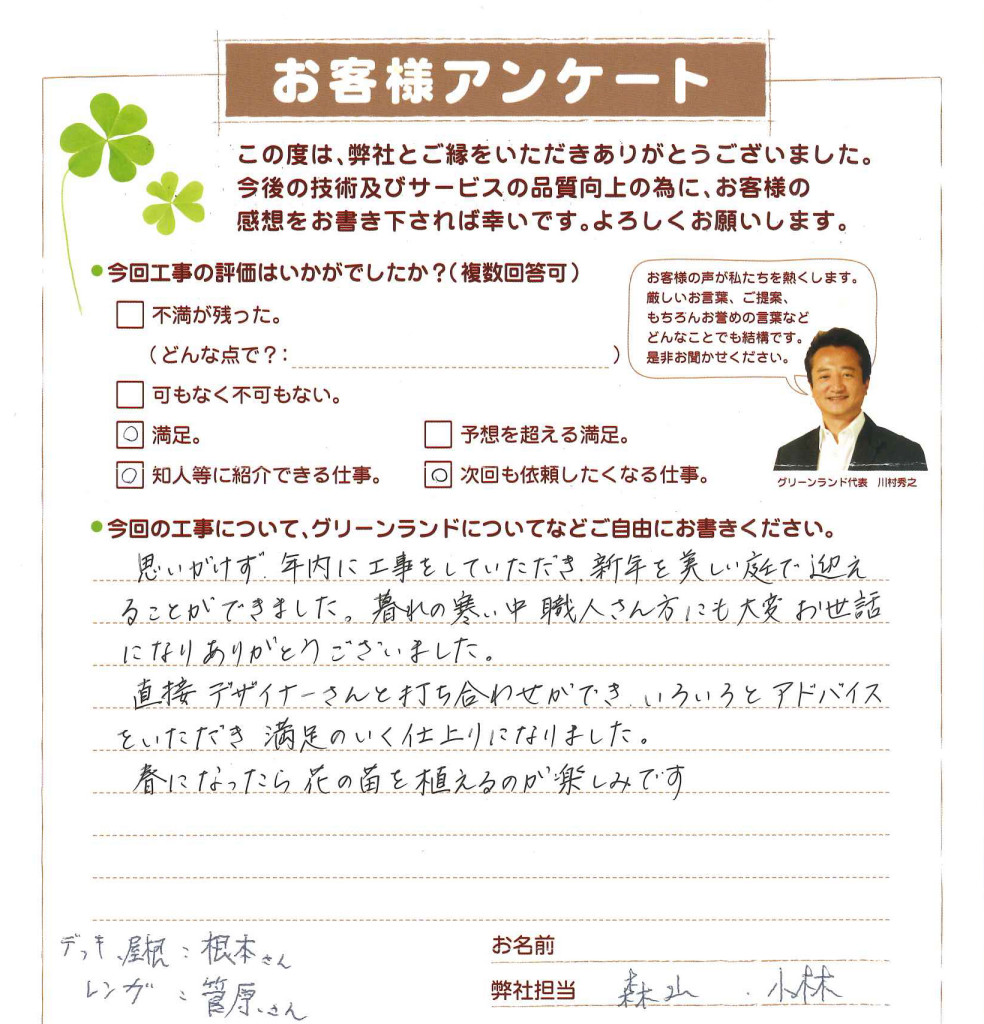 お客様アンケート
この度は、弊社とご縁をいただきありがとうございました。
今後の技術及びサービスの品質向上の為に、お客様の
感想をお書き下されば幸いです。よろしくお願いします。
●今回工事の評価はいかがでしたか？（複数回答可）
不満が残った。
（どんな点で？：　　　）
可もなく不可もない。
○ 満足。
予想を超える満足。
○ 知人等に紹介できる仕事。
○ 次回も依頼したくなる仕事。
お客様の声が私たちを熱くします。
厳しいお言葉、ご提案、
もちろんお誉めの言葉など
どんなことでも結構です。
是非お聞かせください。
グリーンランド代表　川村秀之
●今回の工事について、グリーンランドについてなどご自由にお書きください。
思いがけず、年内に工事をしていただき、新年を美しい庭で迎え
ることができました。暮れの寒い中 職人さん方にも大変お世話
になりありがとうございました。
直接デザイナーさんと打ち合わせができ、いろいろとアドバイス
をいただき 満足のいく仕上りになりました。
春になったら花の苗を植えるのが楽しみです
デッキ、屋根：根本さん
レンガ：菅原さん
お名前
弊社担当　森山・小林